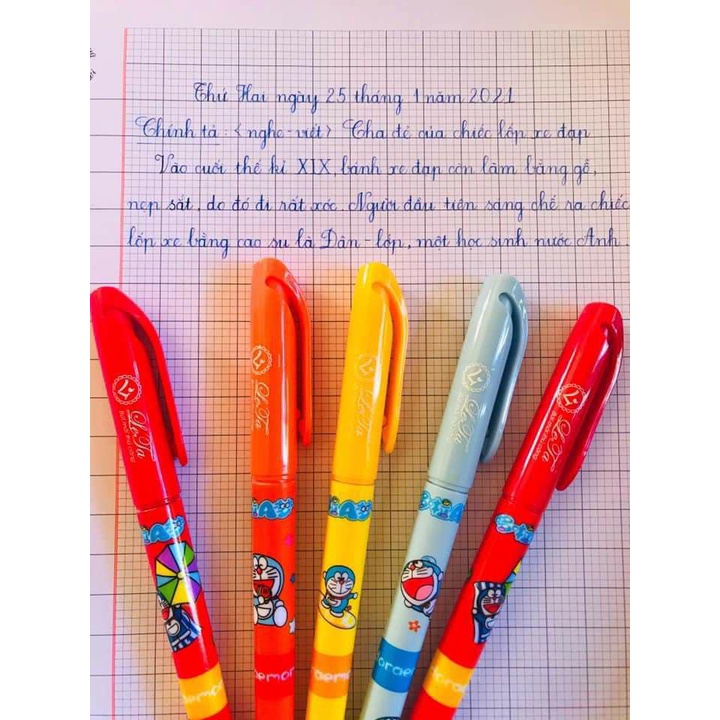 Thứ Hai ngày 25 tháng 1 năm 2021
Chính tả: <nghe-viết> Cha đẻ của chiếc lốp xe đạp
Vào cuối thế kỉ XIX, bánh xe đạp còn làm bằng gỗ,
nẹp sắt, do đó đi rất xóc. Người đầu tiên sáng chế ra chiếc
lốp xe bằng cao su là Dân-lớp, một học sinh nước Anh.
LeTa
LeTa
LeTa
LeTa
LeTa
doraemon
doraemon